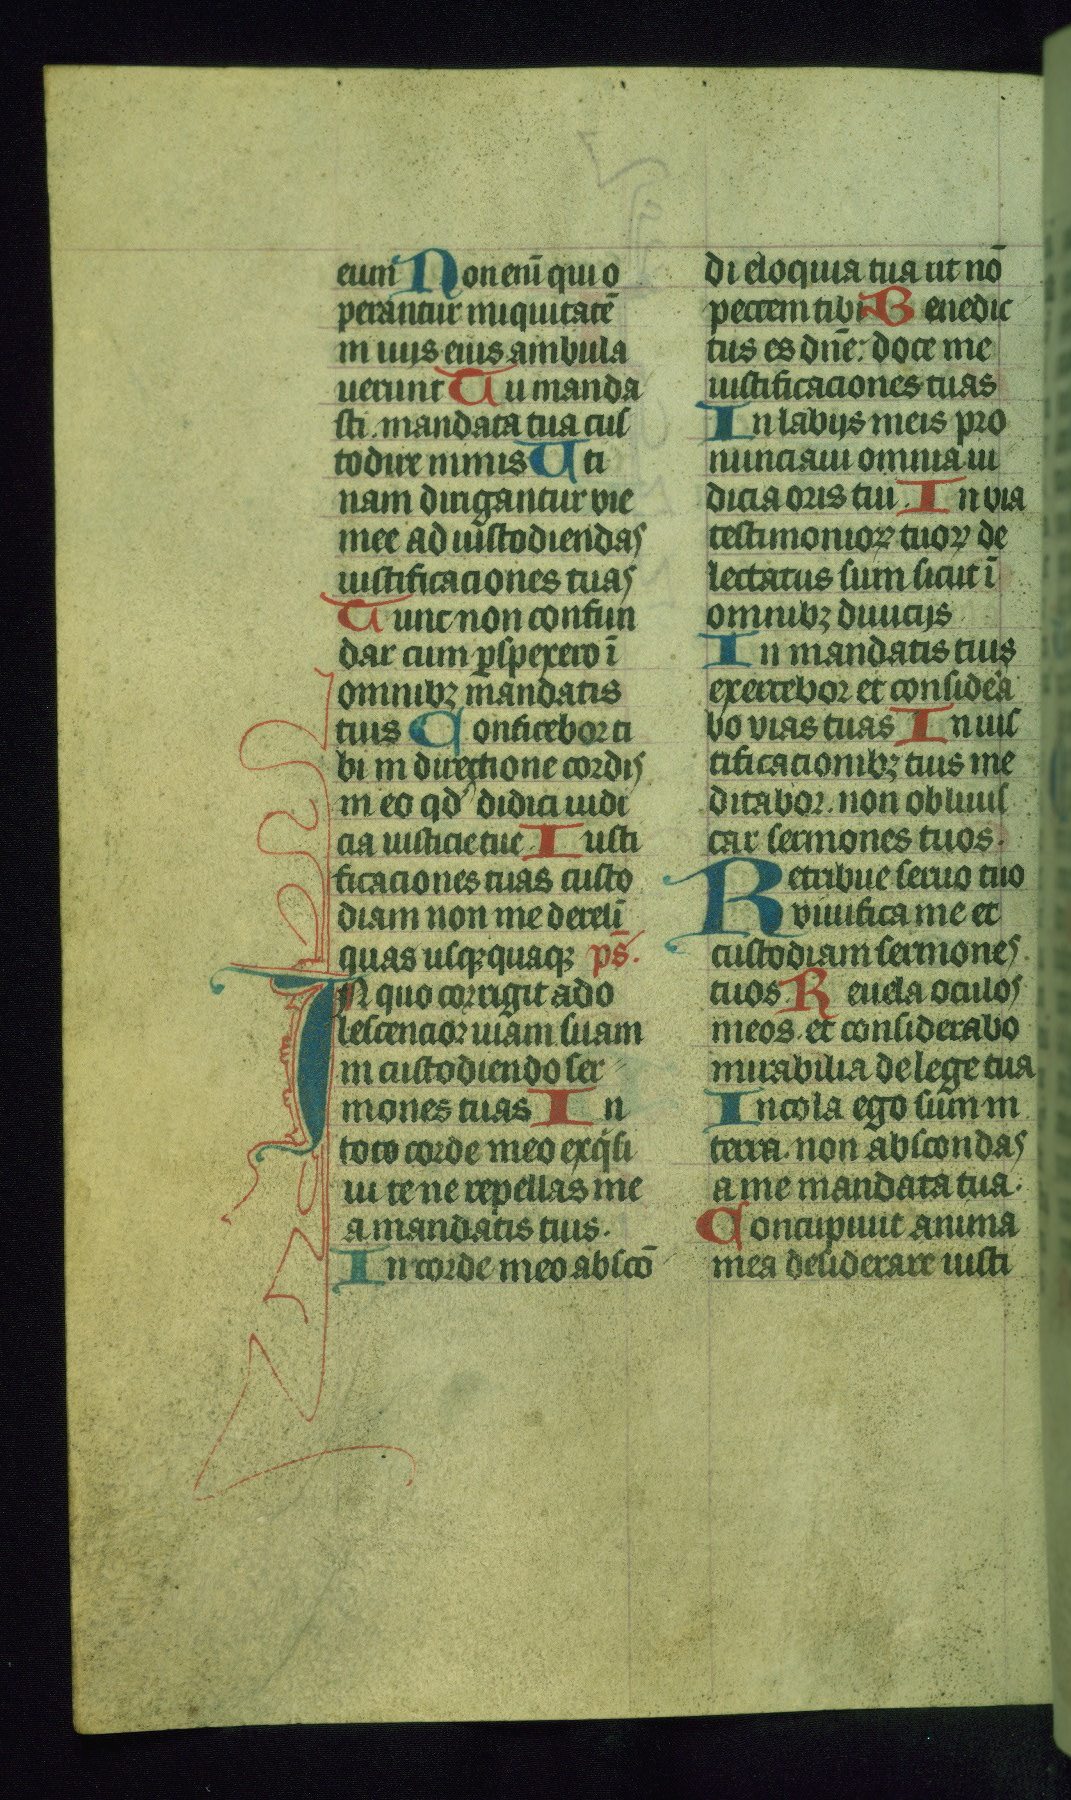 eum Non eni̅ qui o
perantur iniquitate̅
in uijs eius ambula
uerunt Tu manda
sti. mandata tua cus
todire nimis Uti
nam dirigantur vie
mee ad custodiendas
iustificaciones tuas
Tunc non confun
dar cum ꝑspexero i̅
omnibꝫ mandatis
tuis Confitebor ti
bi in directione cordis
in eo qd didici iudi
cia iusticie tue. Iusti
ficaciones tuas custo
diam non me dereli̅
quas usqꝫquaqꝫ ps̅.
IN quo corrigit ado
lescencior uiam suam
in custodiendo ser
mones tuas In
toto corde meo exq̇si
ui te ne repellas me
a mandatis tuis.
In corde meo absco̅
di eloquia tua ut no̅
peccem tibi Benedic
tus es dn̅e: doce me
iustificaciones tuas
In labijs meis pro
nunciaui omnia iu
dicia oris tui. In via
testimonioꝝ tuoꝝ de
lectatus sum sicut i̅
omnibꝫ diuicijs
In mandatis tuis
exercebor et considera
bo vias tuas In ius
tificationibꝫ tuis me
ditabor. non obliuis
car sermones tuos.
Retribue seruo tuo
viuifica me et
custodiam sermones
tuos. Reuela oculos
meos. et considerabo
mirabilia de lege tua
Incola ego sum in
terra. non abscondas
a me mandata tua.
Concupiuit anima
mea desiderare iusti